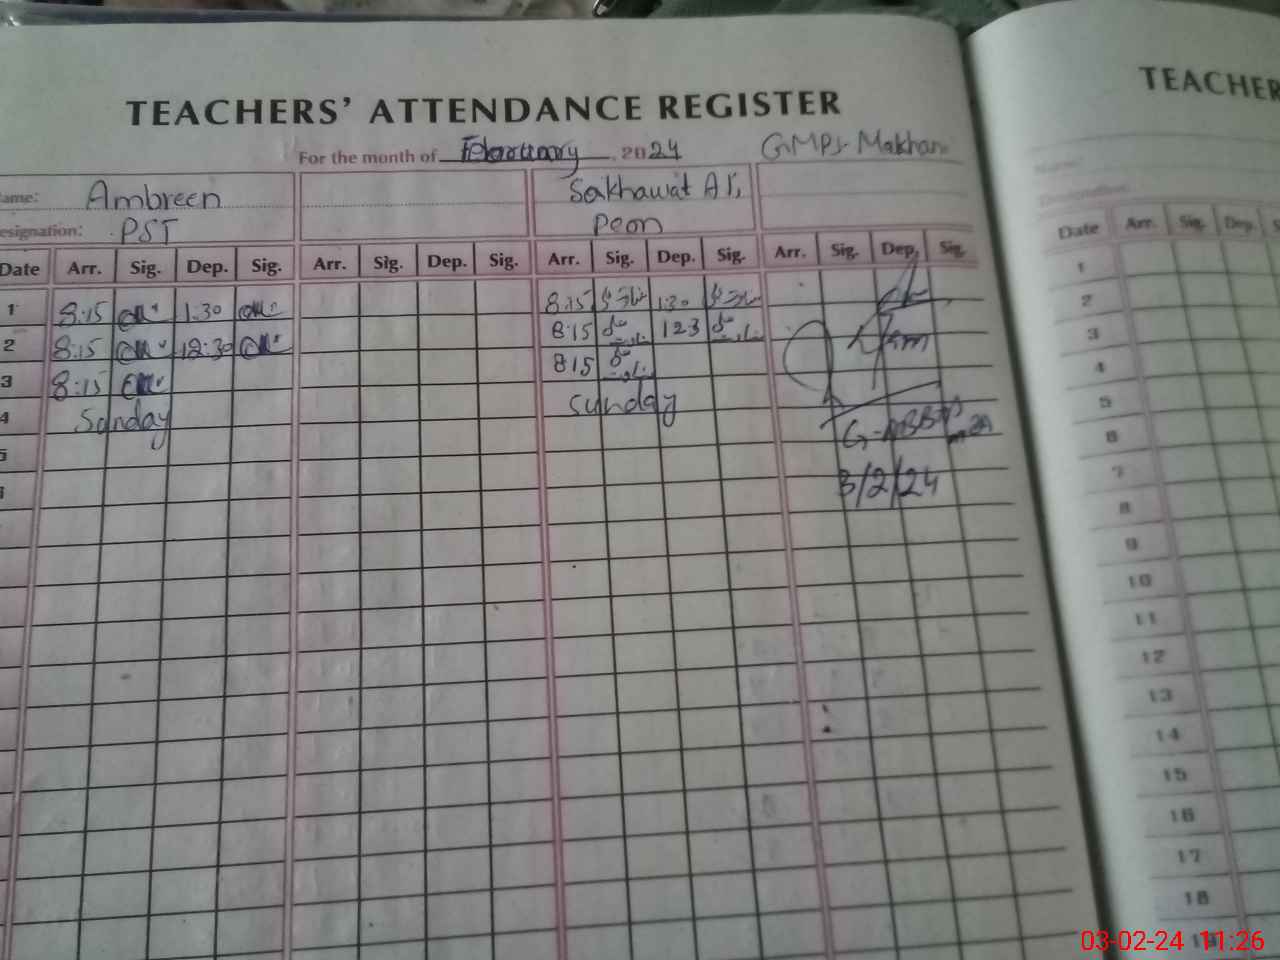 TEACHERS' ATTENDANCE REGISTER
For the month of February, 2024 GMPS Makhan
ame: Ambreen Sakhawat Ali
esignation: PST Peon
Date Arr. Sig. Dep. Sig. Arr. Sig. Dep. Sig. Arr. Sig. Dep. Sig. Arr. Sig. Dep. Sig.
1 8:15 1:30 8:15 1:30
2 8:15 12:30 8:15 123
3 8:15 8:15
4 Sunday Sunday
5
3/2/24
TEACHER
Date Arr. Sig. Dep.
1
2
3
4
5
6
7
8
9
10
11
12
13
14
15
16
17
18
19
03-02-24 11:26